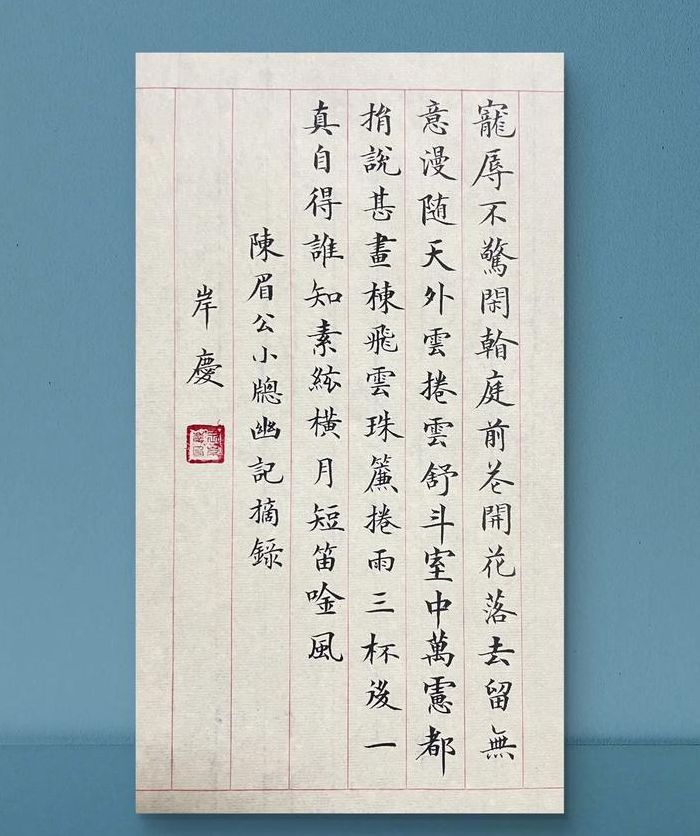 寵辱不驚閑看庭前芲開花落去留無
意漫随天外雲捲雲舒斗室中萬慮都
捐說甚畫棟飛雲珠簾捲雨三杯後一
真自得誰知素絃橫月短笛唫風
陳眉公小牕幽記摘錄
岸慶